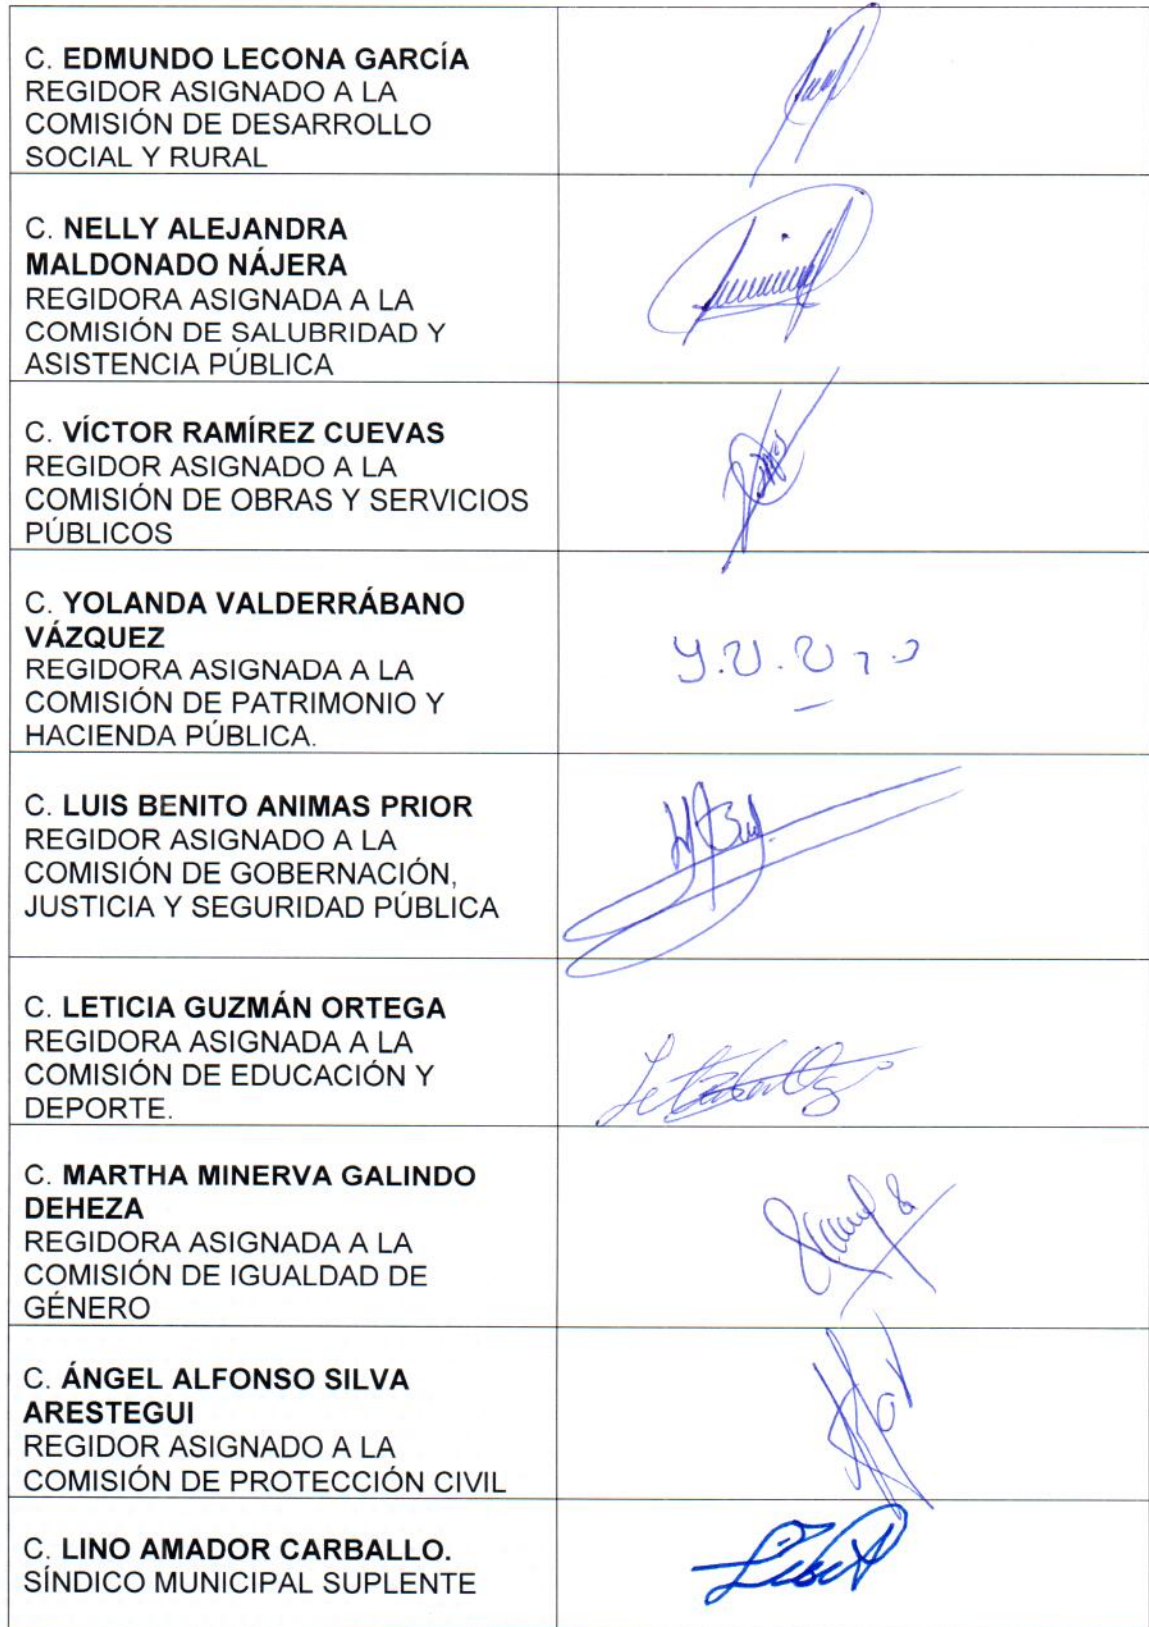 C. EDMUNDO LECONA GARCÍA
REGIDOR ASIGNADO A LA
COMISIÓN DE DESARROLLO
SOCIAL Y RURAL
C. NELLY ALEJANDRA
MALDONADO NÁJERA
REGIDORA ASIGNADA A LA
COMISIÓN DE SALUBRIDAD Y
ASISTENCIA PÚBLICA
C. VÍCTOR RAMÍREZ CUEVAS
REGIDOR ASIGNADO A LA
COMISIÓN DE OBRAS Y SERVICIOS
PÚBLICOS
C. YOLANDA VALDERRÁBANO
VÁZQUEZ
REGIDORA ASIGNADA A LA
COMISIÓN DE PATRIMONIO Y
HACIENDA PÚBLICA.
C. LUIS BENITO ANIMAS PRIOR
REGIDOR ASIGNADO A LA
COMISIÓN DE GOBERNACIÓN,
JUSTICIA Y SEGURIDAD PÚBLICA
C. LETICIA GUZMÁN ORTEGA
REGIDORA ASIGNADA A LA
COMISIÓN DE EDUCACIÓN Y
DEPORTE.
C. MARTHA MINERVA GALINDO
DEHEZA
REGIDORA ASIGNADA A LA
COMISIÓN DE IGUALDAD DE
GÉNERO
C. ÁNGEL ALFONSO SILVA
ARESTEGUI
REGIDOR ASIGNADO A LA
COMISIÓN DE PROTECCIÓN CIVIL
C. LINO AMADOR CARBALLO.
SÍNDICO MUNICIPAL SUPLENTE